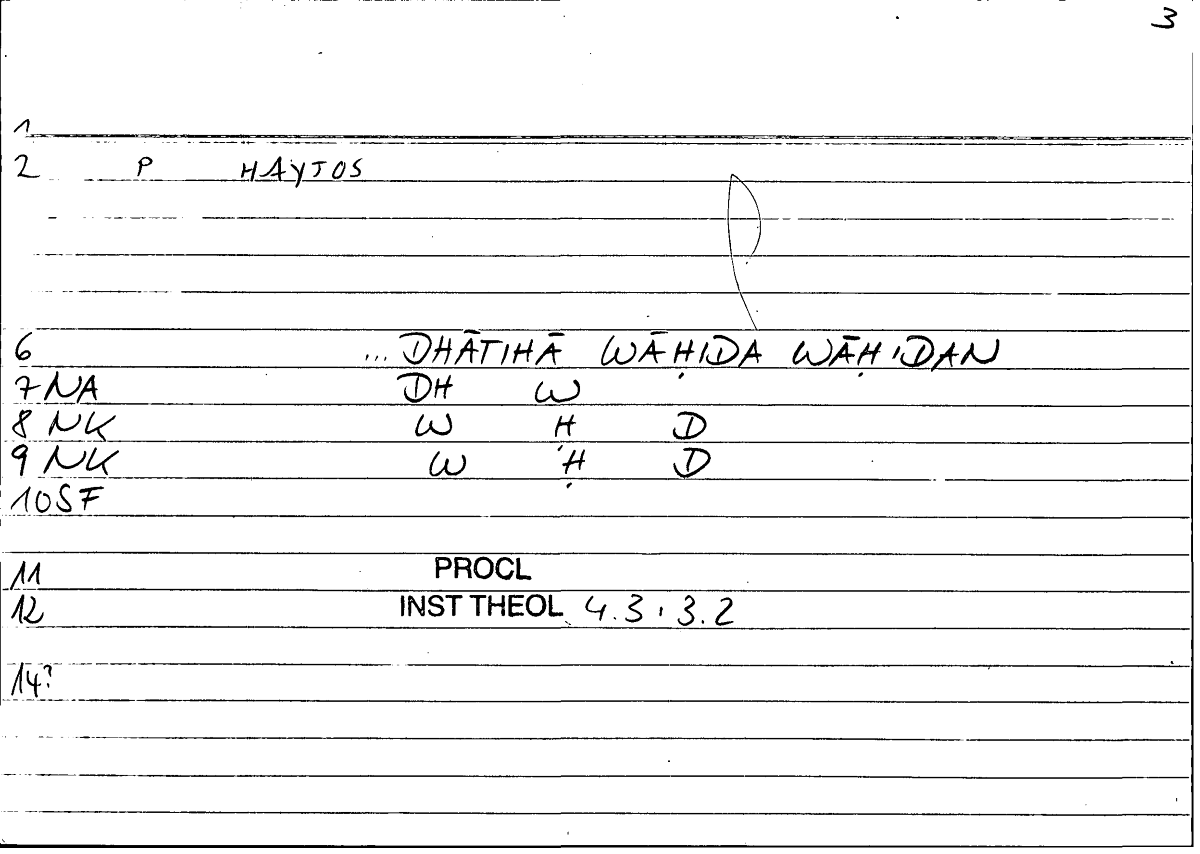 3
1
2 P HAYTOS
6 ... DHĀTIHĀ WĀḤIDA WĀḤIDAN
7 NA DH W
8 NK W Ḥ D
9 NK W Ḥ D
10 SF
11 PROCL
12 INST THEOL 4.3 , 3.2
14?